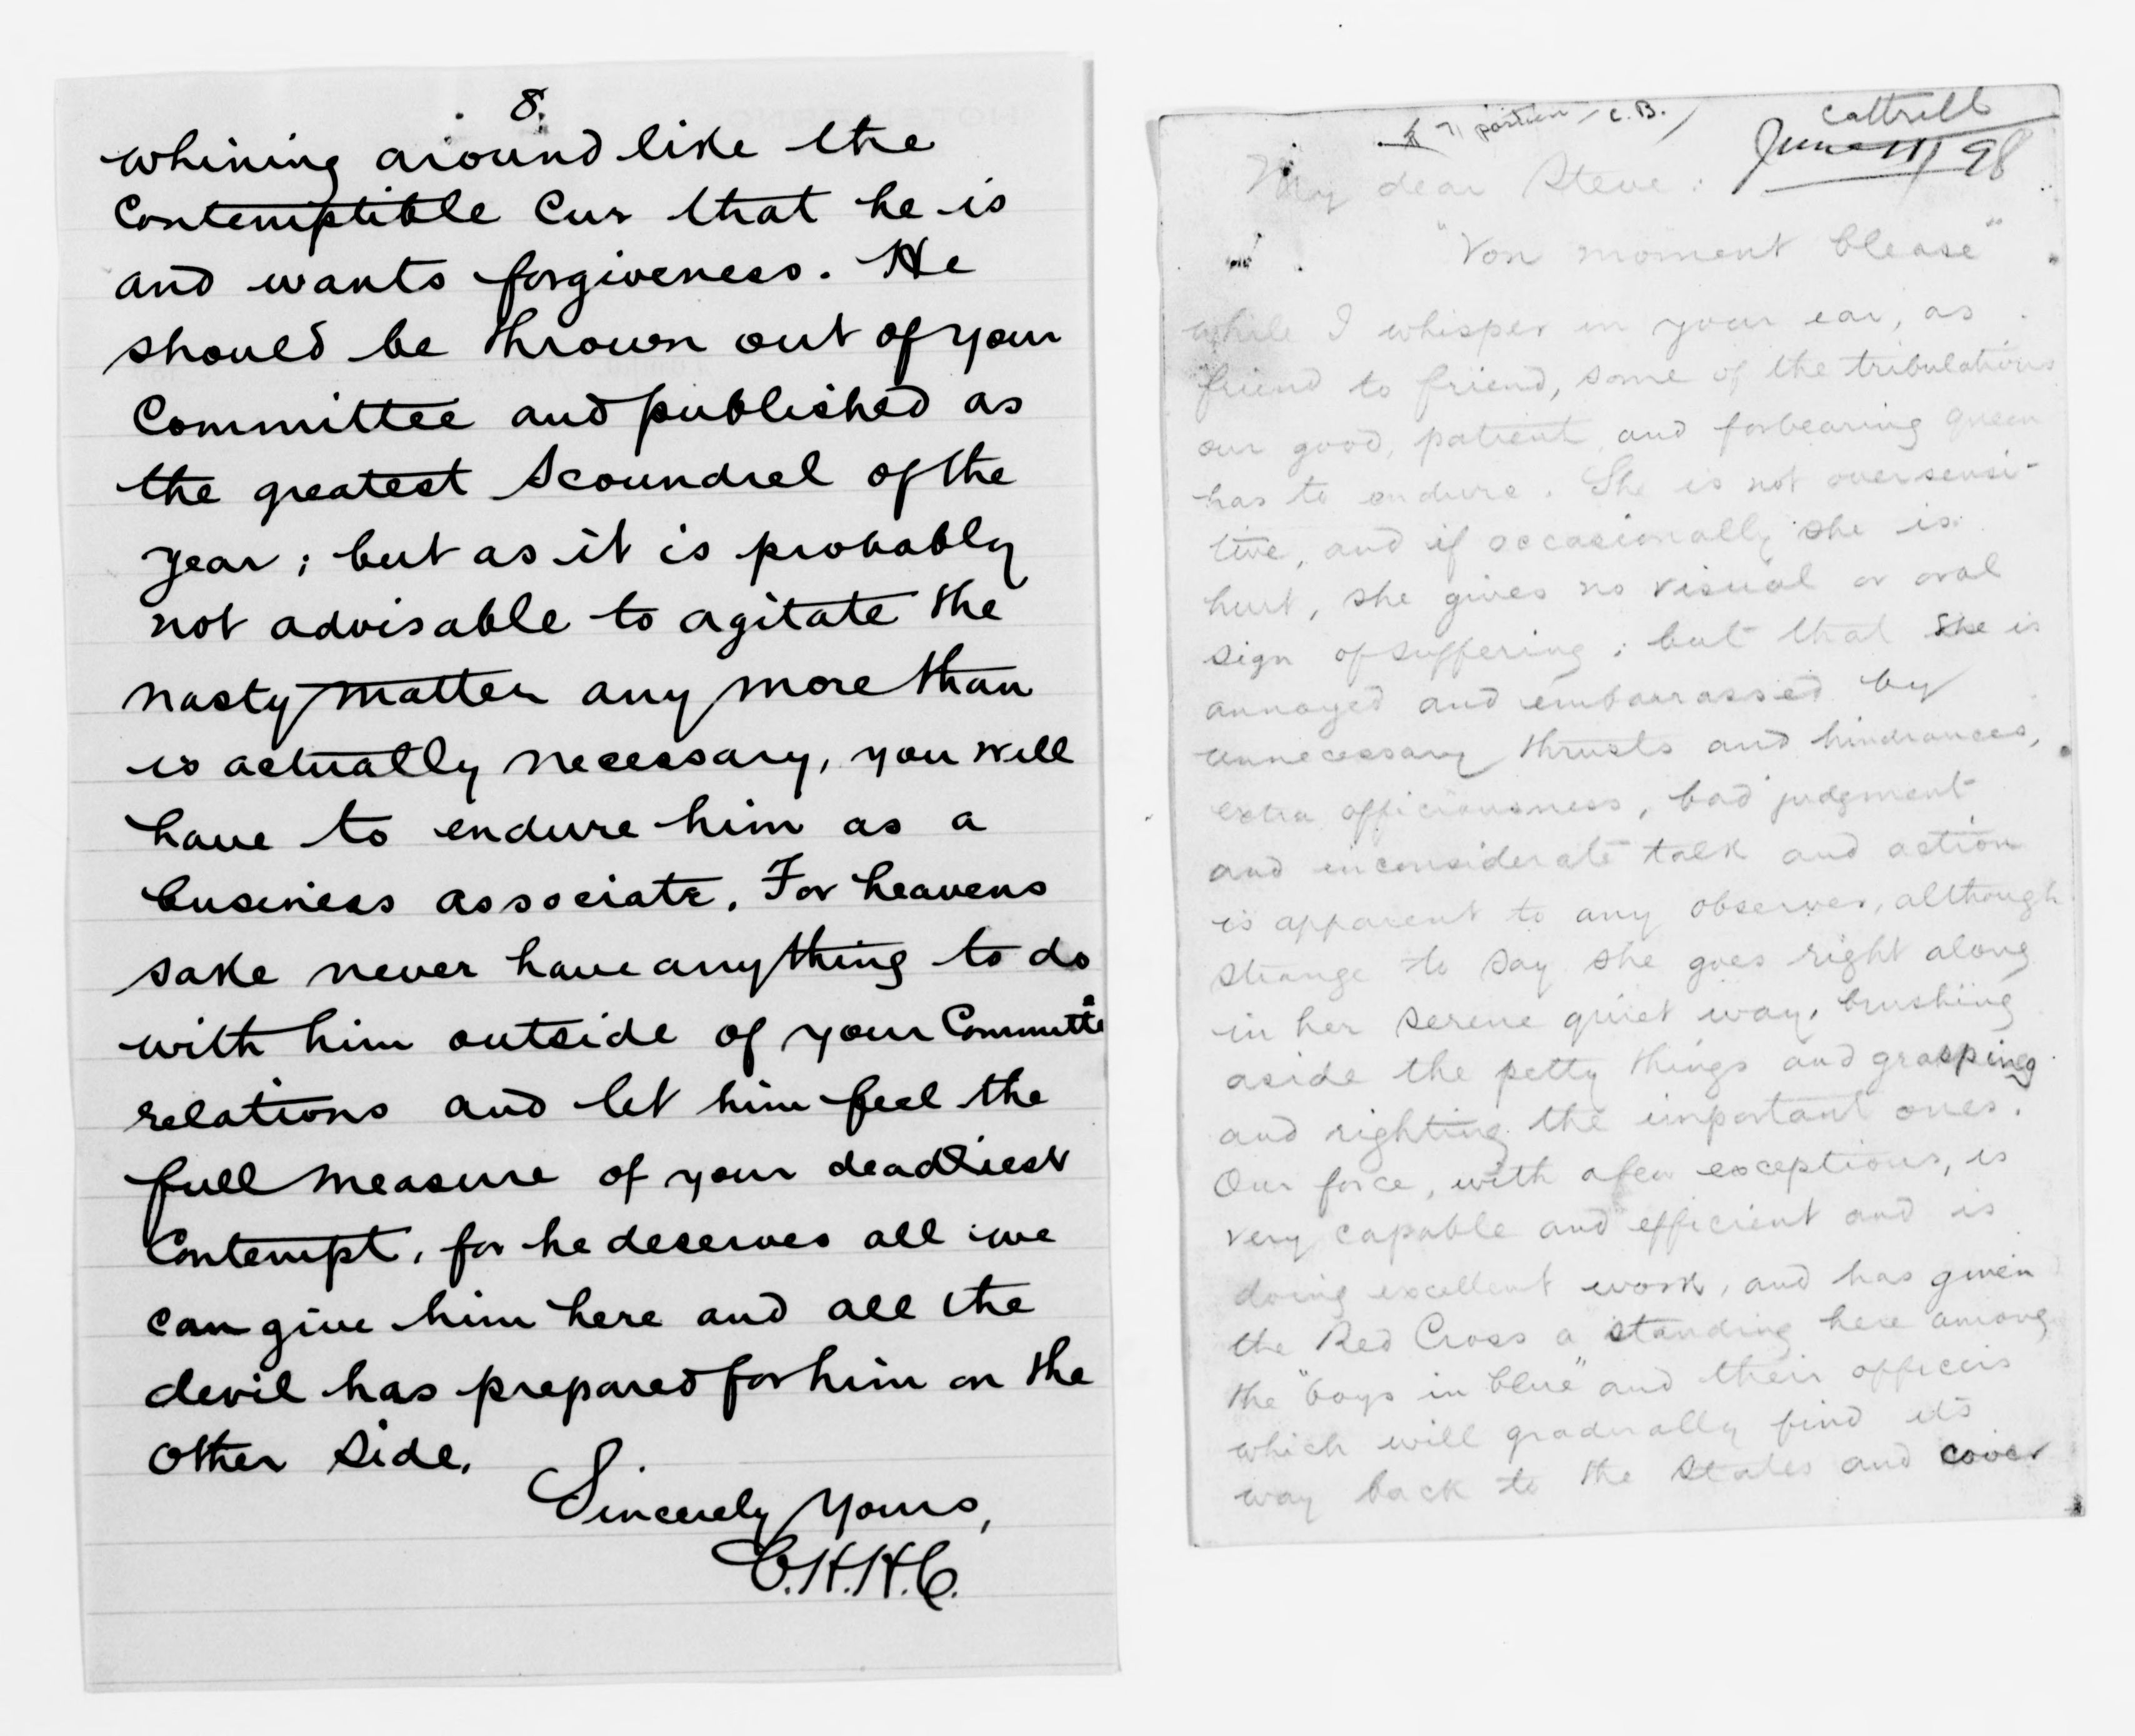 8.
whining around like the
Contemptible Cur that he is
and wants forgiveness. He
should be thrown out of your
Committee and published as
the greatest Scoundrel of the
year; but as it is probably
not advisable to agitate the
nasty matter any more than
is actually necessary, you will
have to endure him as a
business associate. For heavens
sake never have anything to do
with him outside of your Committee
relations and let him feel the
full measure of your deadliest
Contempt, for he deserves all we
can give him here and all the
devil has prepared for him on the
other side.
Sincerely Yours,
C.H.H.C.
C.B.
Cottrell
June 98
My dear Steve:
"Von moment blease"
while I whisper in your ear, as
friend to friend, some of the tribulations
our good, patient and forbearing queen
has to endure. She is not oversensi-
tive, and if occasionally she is
hurt, she gives no visual or oral
sign of suffering; but that she is
annoyed and embarrassed by
unnecessary thrusts and hindrances,
extra officiousness, bad judgment
and inconsiderate talk and action
is apparent to any observer, although
strange to say she goes right along
in her serene quiet way, brushing
aside the petty things and grasping
and righting the important ones.
Our force, with a few exceptions, is
very capable and efficient and is
doing excellent work, and has given
the Red Cross a standing here among
the "boys in blue" and their officers
which will gradually find its
way back to the States and cover